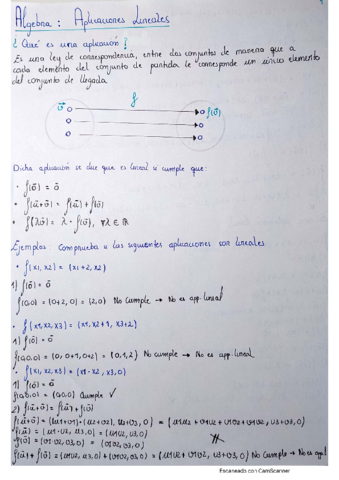 Álgebra: Aplicaciones Lineales
¿Qué es una aplicación?
Es una ley de correspondencia, entre dos conjuntos de manera que a
cada elemento del conjunto de partida le corresponde un único elemento
del conjunto de llegada.
f
v⃗ f(v⃗)
Dicha aplicación se dice que es lineal si cumple que:
• f(o⃗) = o⃗
• f(u⃗+v⃗) = f(u⃗) + f(v⃗)
• f(λv⃗) = λ · f(v⃗), ∀λ ∈ ℝ
Ejemplos: Comprueba si las siguientes aplicaciones son lineales
• f(x1, x2) = (x1+2, x2)
1) f(o⃗) = o⃗
f(0,0) = (0+2, 0) = (2,0) No cumple → No es app. lineal
• f(x1, x2, x3) = (x1, x2+1, x3+2)
1) f(o⃗) = o⃗
f(0,0,0) = (0, 0+1, 0+2) = (0,1,2) No cumple → No es app. lineal
• f(x1, x2, x3) = (x1·x2, x3, 0)
1) f(o⃗) = o⃗
f(0,0,0) = (0,0,0) Cumple ✓
2) f(u⃗+v⃗) = f(u⃗) + f(v⃗)
f(u⃗+v⃗) = (u1+v1)·(u2+v2), u3+v3, 0) = (u1u2 + v1u2 + v1v2, u3+v3, 0)
f(u⃗) = (u1·u2, u3, 0) = (u1u2, u3, 0)
f(v⃗) = (v1·v2, v3, 0) = (v1v2, v3, 0)
f(u⃗) + f(v⃗) = (u1u2, u3, 0) + (v1v2, v3, 0) = (u1u2 + v1v2, u3+v3, 0) No cumple → No es
Escaneado con CamScanner